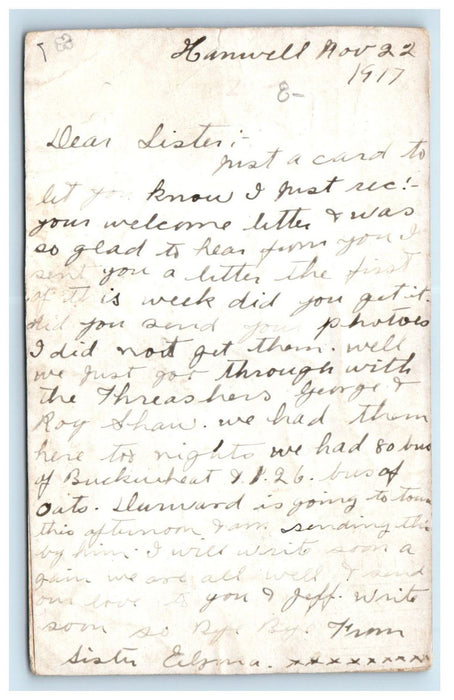 Hanwell Nov 22
1917
8-
Dear Sister;-
Just a card to
let you know I Just rec!-
your welcome letter & was
so glad to hear from you I
sent you a letter the first
of this week did you get it.
did you send your photoes
I did nott get them. well
we Just got through with
the Threashers George &
Roy Shaw. we had them
here to nights we had 80 bus
of Buckwheat & 126. bus of
Oats. Durward is going to town
this afternoon & am sending this
by him. I will write soon a
gain we are all well & send
our love to you & Jeff. Write
soon so Bye Bye. From
Sister x x x x x x x x